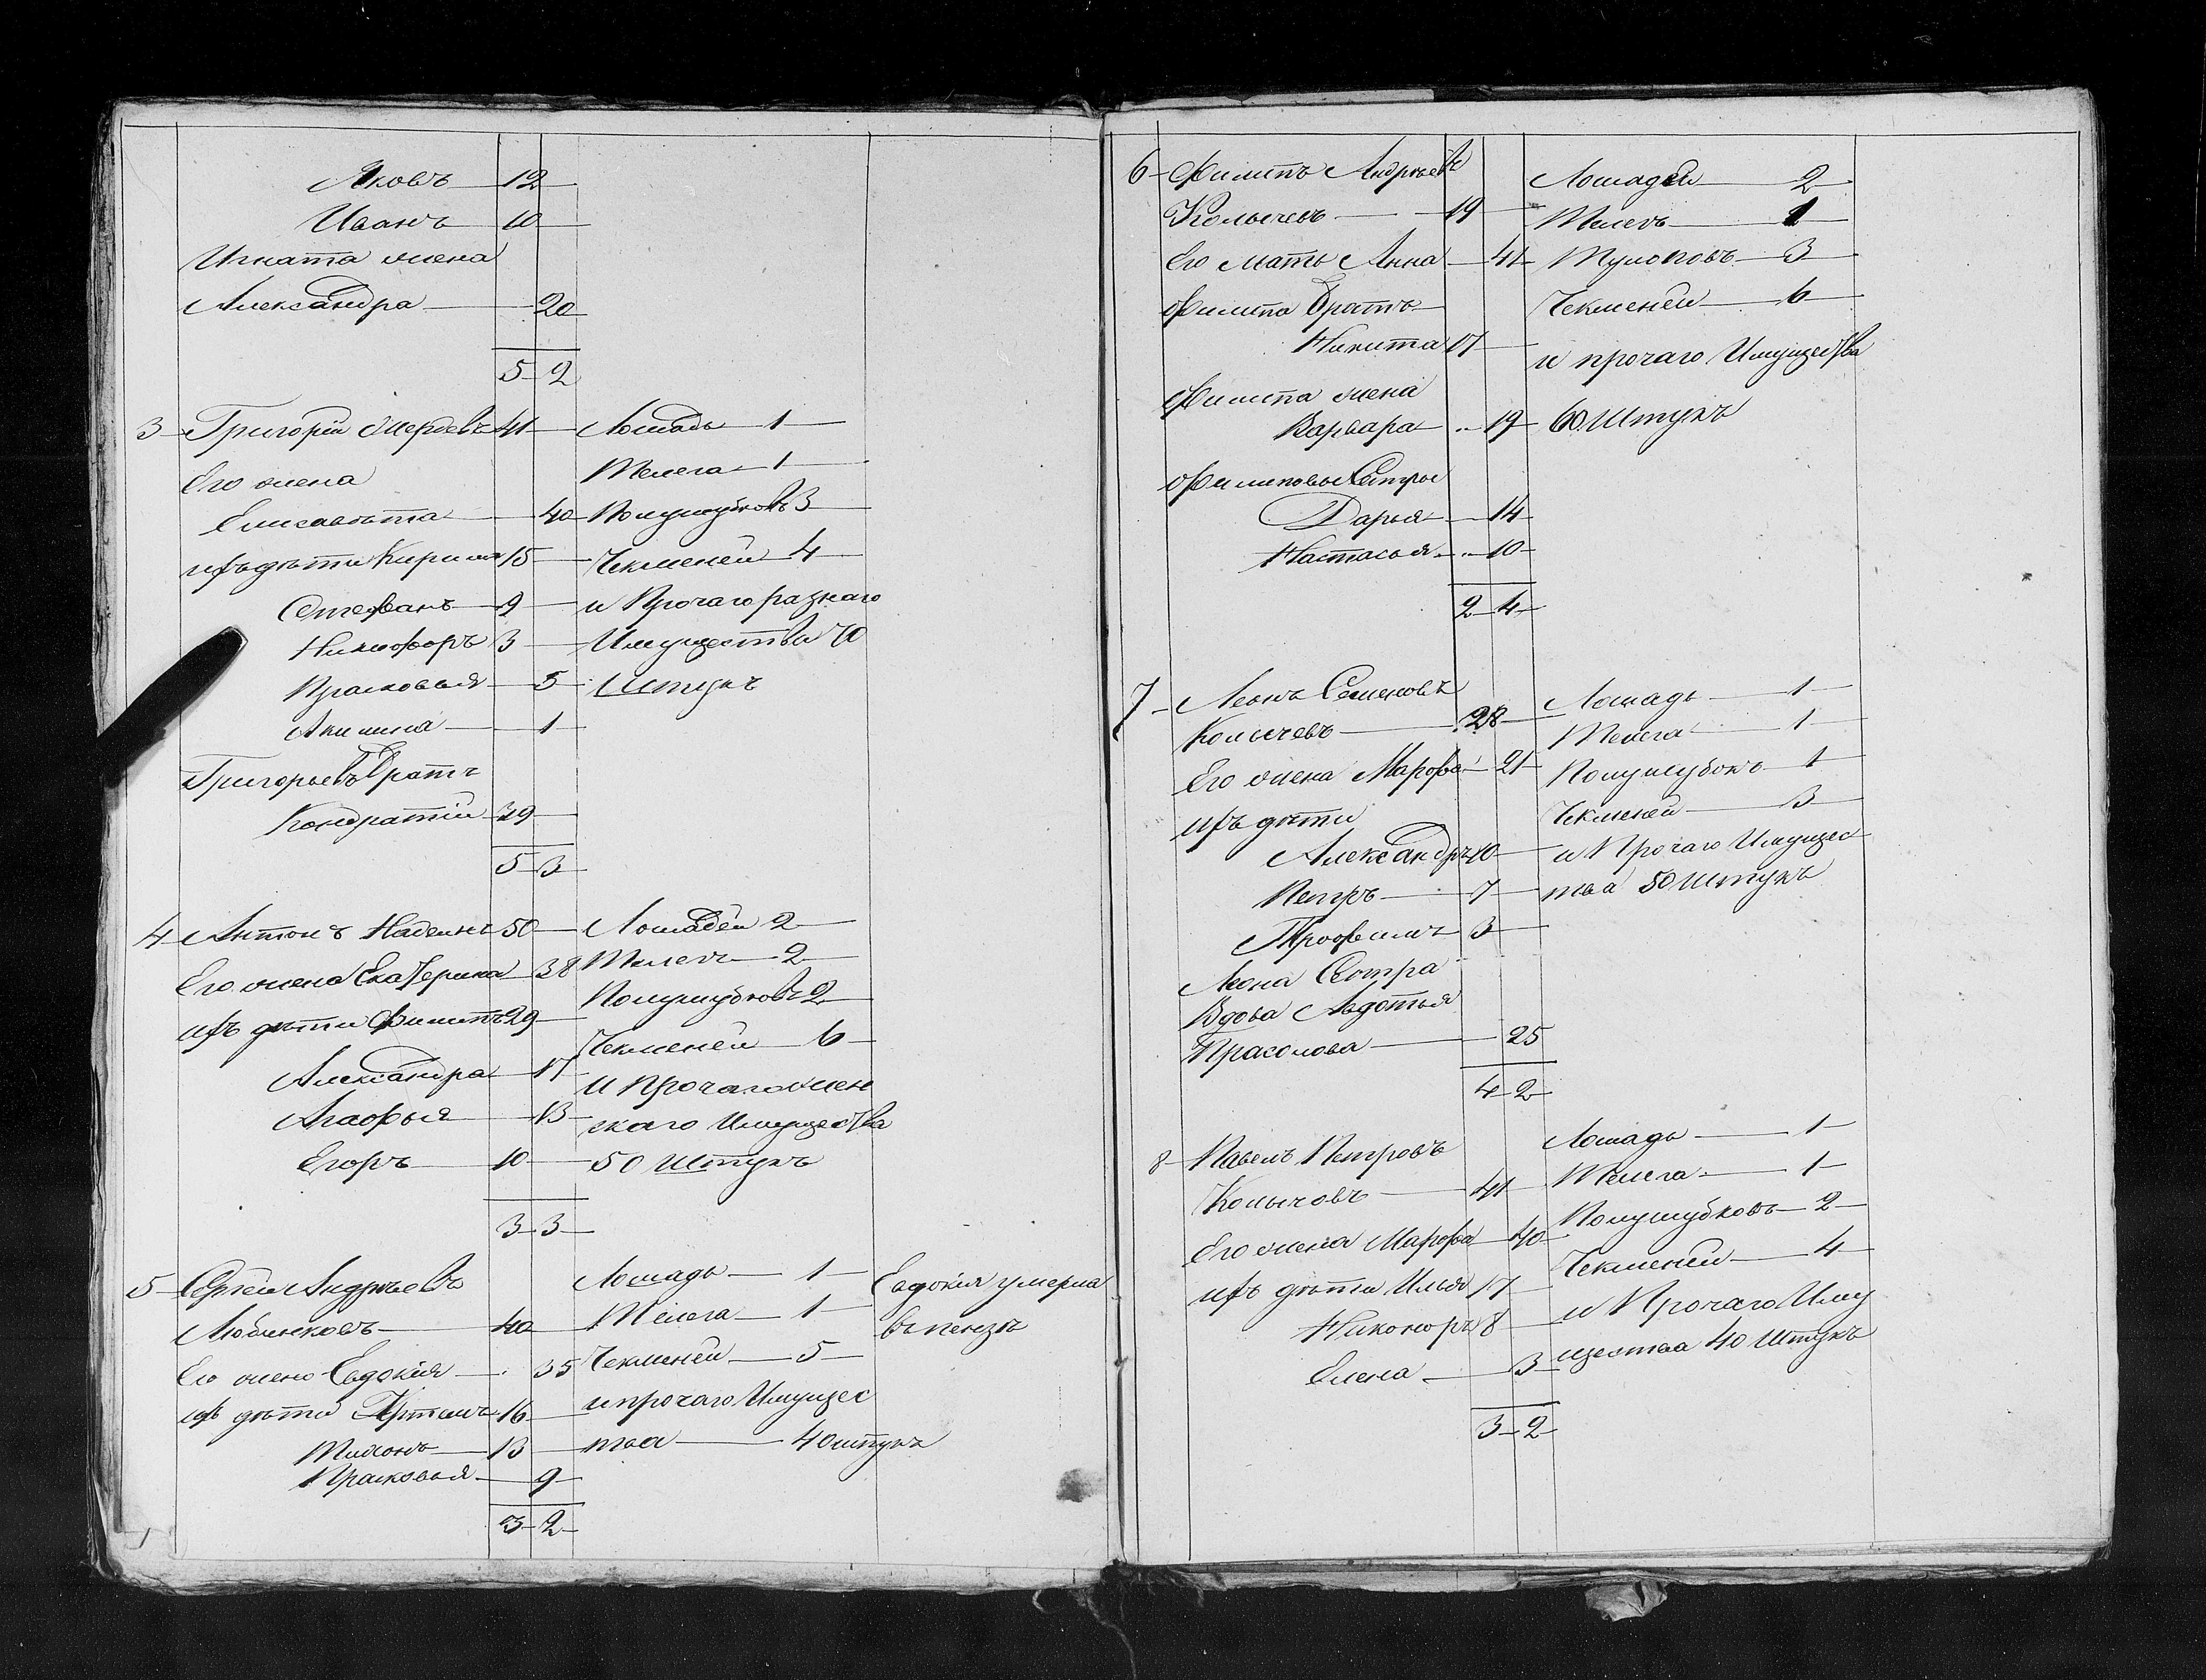 Яковъ 12
Иванъ 10
Игната жена
Александра 20
5 2
3 Григорій 41 Лошадь 1
Его жена Телега 1
Елисавѣта 40 Полушубковъ 3
ихъ дѣти Кирила 15 Чекменей 4
Стефанъ 9 и Прочаго разнаго
Никифоръ 3 Имущества 70
Прасковья 5 Штукъ
Акилина 1
Григорьевъ Братъ
Кондратій 39
5 3
4 Антонъ Наделинъ 50 Лошадей 2
Его жена Екатерина 38 Телегъ 2
ихъ дѣти Филипъ 29 Полушубковъ 2
Чекменей 6
Александра 17 и Прочаго жен
Агафья 13 скаго Имущества
Егоръ 10 50 Штукъ
3 3
5 Сергей Андрѣевъ Лошадь 1 Евдокія умерла
Любинковъ 40 Телега 1 въ пензѣ
Его жена Евдокія 35 Чекменей 5
ихъ дѣти 16 и прочаго Имущес
Тихонъ 13 тва 40 штукъ
Прасковья 9
3 2
6 Филипъ Андрѣевъ Лошадей 2
Колычевъ 19 Телегъ 1
Его мать Анна 41 Тулоповъ 3
Филипа Братъ Чекменей 6
Никита 17 и прочаго Имущества
Филипа жена
Варвара 19 60 Штукъ
Филиповы Сестры
Дарья 14
Настасья 10
2 4
7 Леонъ Семеновъ Лошадь 1
Колычевъ 28 Телега 1
Его жена Марфа 21 Полушубокъ 1
ихъ дѣти Чекменей 3
Александръ 10 и Прочаго Имущес
Петръ 7 тва 50 Штукъ
Трофимъ 3
Леона Сестра
Вдова Авдотья
Прасолова 25
4 2
8 Павелъ Петровъ Лошадь 1
Колычовъ 41 Телега 1
Его жена Марфа 40 Полушубковъ 2
ихъ дѣти Илья 17 Чекменей 4
Никоноръ 8 и Прочаго Иму
Елена 3 щества 40 Штукъ
3 2